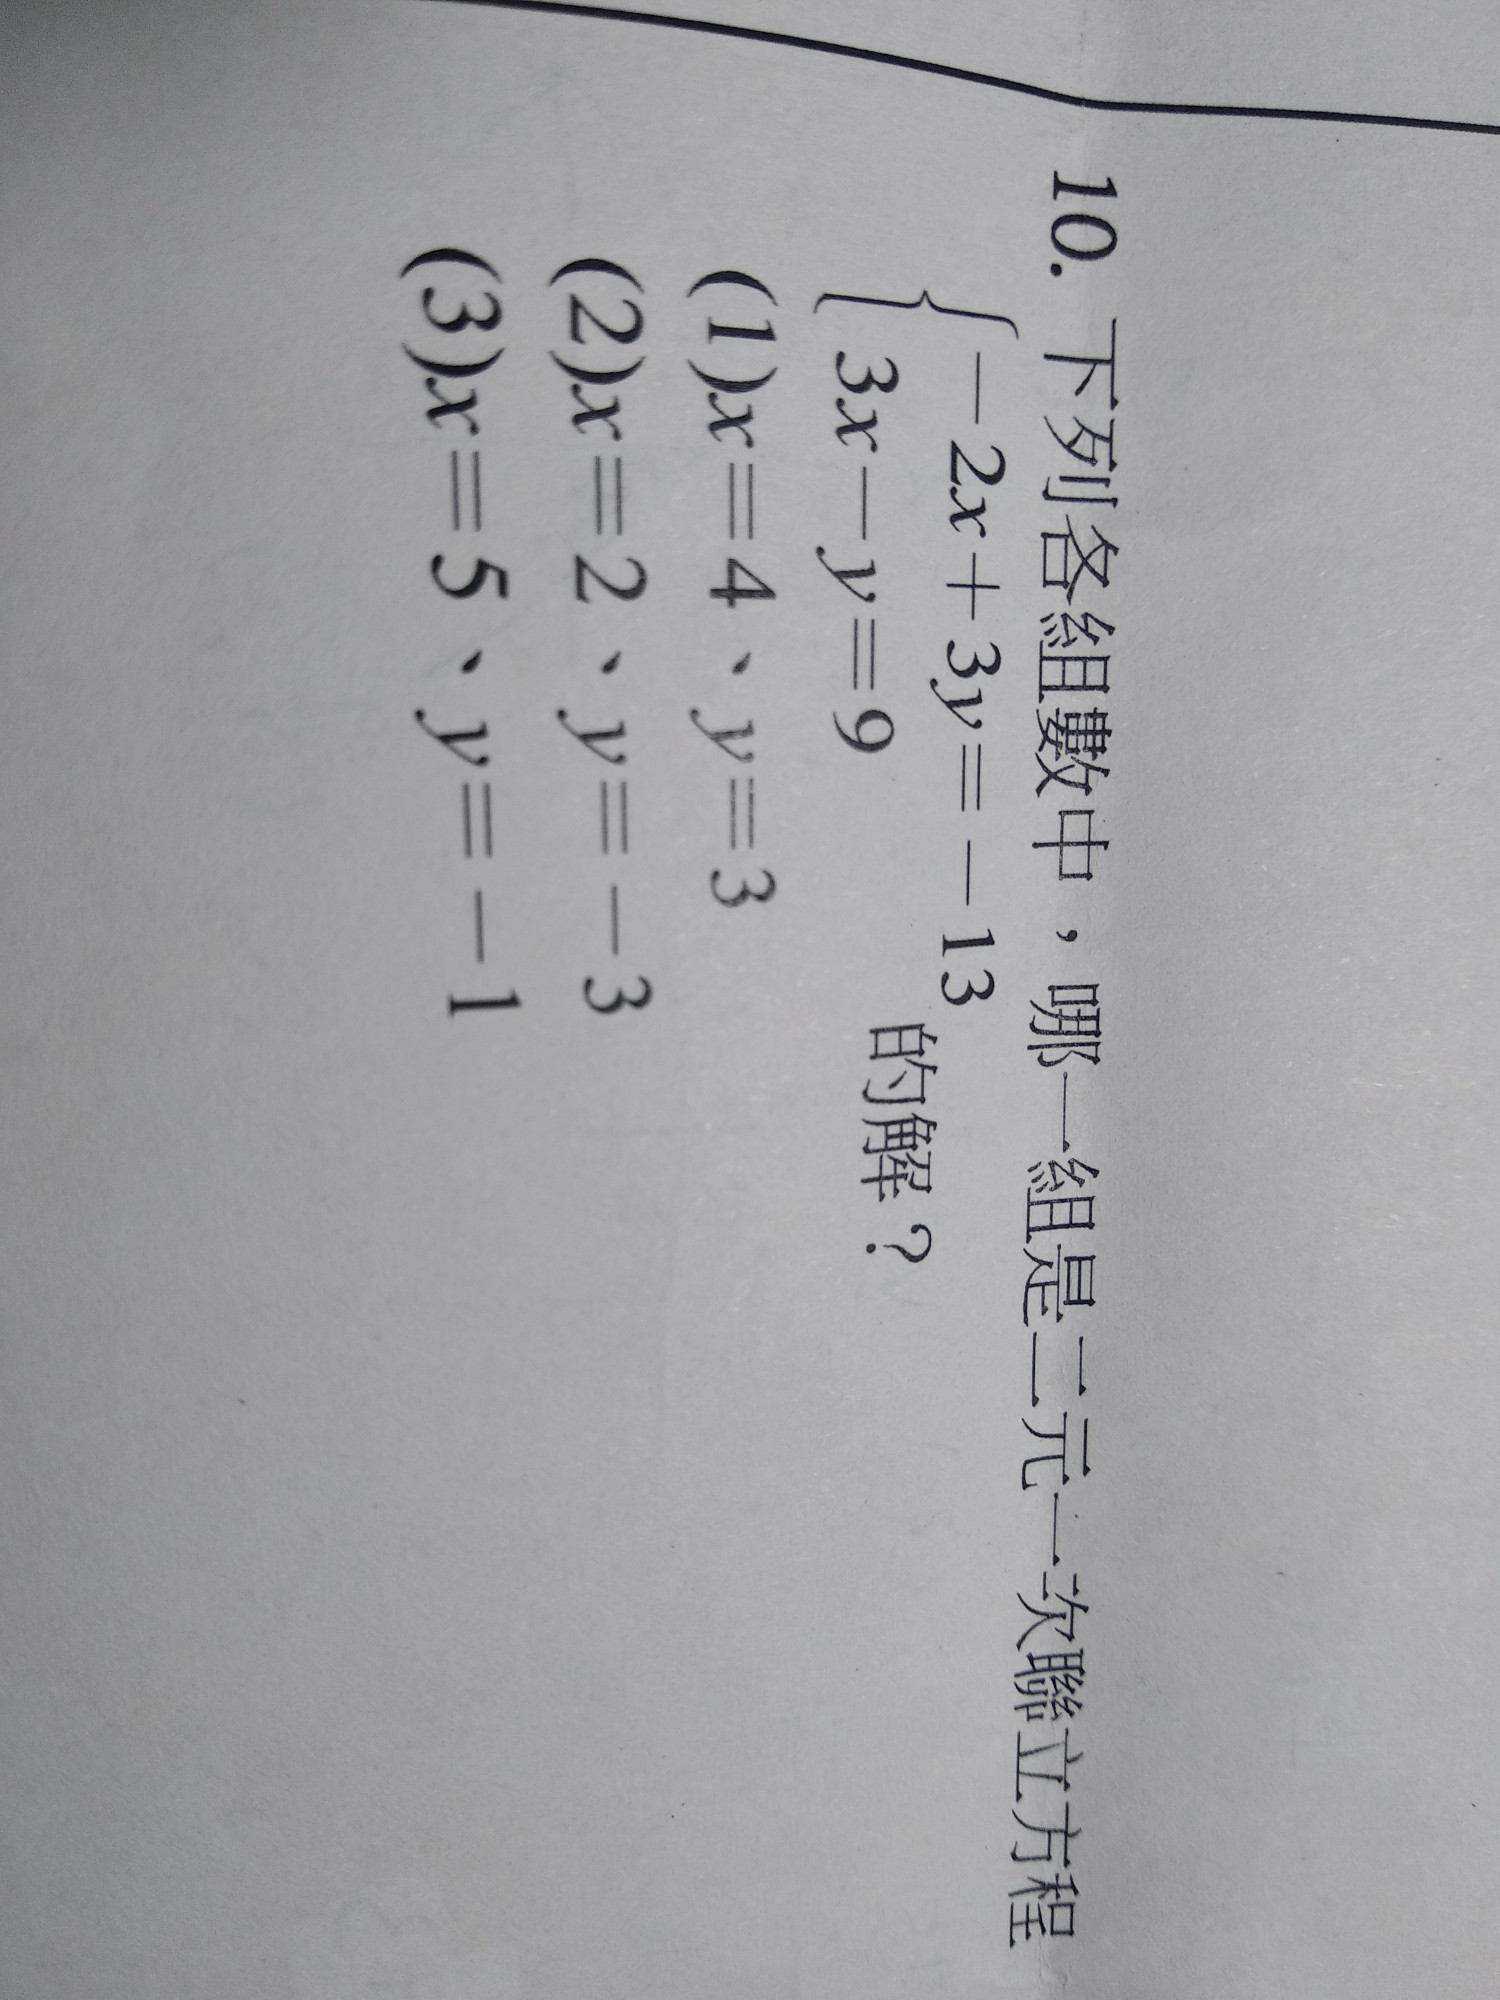 10. 下列各組數中，哪一組是二元一次聯立方程
{−2x+3y=−13
3x−y=9
的解？
(1)x=4、y=3
(2)x=2、y=−3
(3)x=5、y=−1